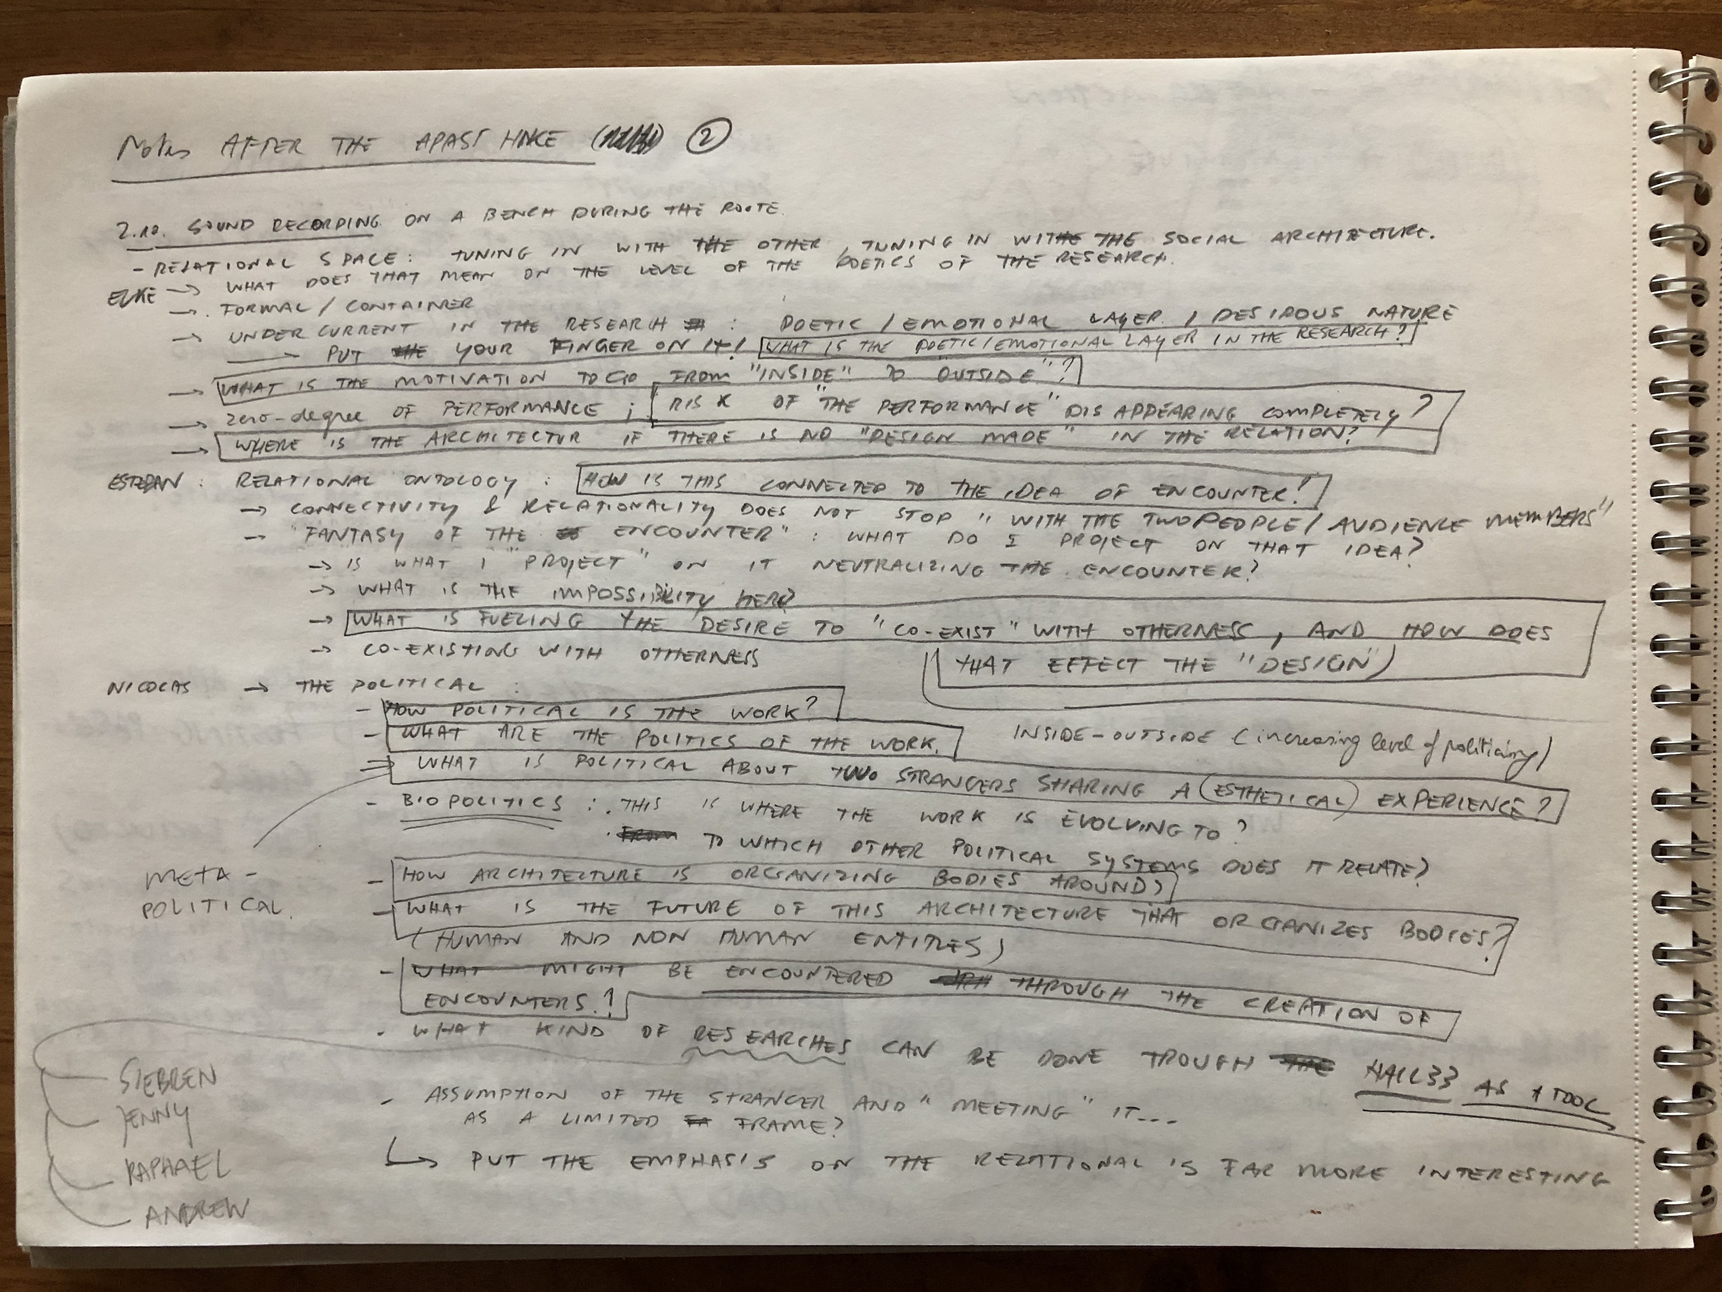 Notes AFTER THE APASS HIKE ②
2.10. SOUND RECORDING ON A BENCH DURING THE ROUTE.
- RELATIONAL SPACE: TUNING IN WITH THE OTHER, TUNING IN WITH THE SOCIAL ARCHITECTURE.
ELKE → WHAT DOES THAT MEAN ON THE LEVEL OF THE POETICS OF THE RESEARCH.
→ FORMAL / CONTAINER
→ UNDERCURRENT IN THE RESEARCH : POETIC / EMOTIONAL LAYER / DESIROUS NATURE
→ PUT YOUR FINGER ON IT! WHAT IS THE POETIC/EMOTIONAL LAYER IN THE RESEARCH?
→ WHAT IS THE MOTIVATION TO GO FROM "INSIDE" TO "OUTSIDE"?
→ zero-degree OF PERFORMANCE ; RISK OF "THE PERFORMANCE" DISAPPEARING COMPLETELY?
→ WHERE IS THE ARCHITECTUR IF THERE IS NO "DESIGN MADE" IN THE RELATION?
ESTEBAN : RELATIONAL ONTOLOGY : HOW IS THIS CONNECTED TO THE IDEA OF ENCOUNTER!
→ CONNECTIVITY & RELATIONALITY DOES NOT STOP "WITH THE TWO PEOPLE / AUDIENCE MEMBERS"
→ "FANTASY OF THE ENCOUNTER" : WHAT DO I PROJECT ON THAT IDEA?
→ IS WHAT I "PROJECT" ON IT NEUTRALIZING THE ENCOUNTER?
→ WHAT IS THE IMPOSSIBILITY HERE?
→ WHAT IS FUELING THE DESIRE TO "CO-EXIST" WITH OTHERNESS, AND HOW DOES
THAT EFFECT THE "DESIGN")
→ CO-EXISTING WITH OTHERNESS
NICOLAS → THE POLITICAL :
- HOW POLITICAL IS THE WORK?
- WHAT ARE THE POLITICS OF THE WORK.
INSIDE-OUTSIDE (increasing level of politicizing)
WHAT IS POLITICAL ABOUT TWO STRANGERS SHARING A (ESTHETICAL) EXPERIENCE?
- BIOPOLITICS : . THIS IS WHERE THE WORK IS EVOLVING TO?
. TO WHICH OTHER POLITICAL SYSTEMS DOES IT RELATE?
META-
POLITICAL.
- HOW ARCHITECTURE IS ORGANIZING BODIES AROUND?
- WHAT IS THE FUTURE OF THIS ARCHITECTURE THAT ORGANIZES BODIES?
(HUMAN AND NON HUMAN ENTITIES)
- WHAT MIGHT BE ENCOUNTERED THROUGH THE CREATION OF
ENCOUNTERS?
- WHAT KIND OF RESEARCHES CAN BE DONE TROUGH HALL33 AS A TOOL
- ASSUMPTION OF THE STRANGER AND "MEETING" IT...
AS A LIMITED FRAME?
↳ PUT THE EMPHASIS ON THE RELATIONAL IS FAR MORE INTERESTING
SIEBREN
JENNY
RAPHAEL
ANDREW